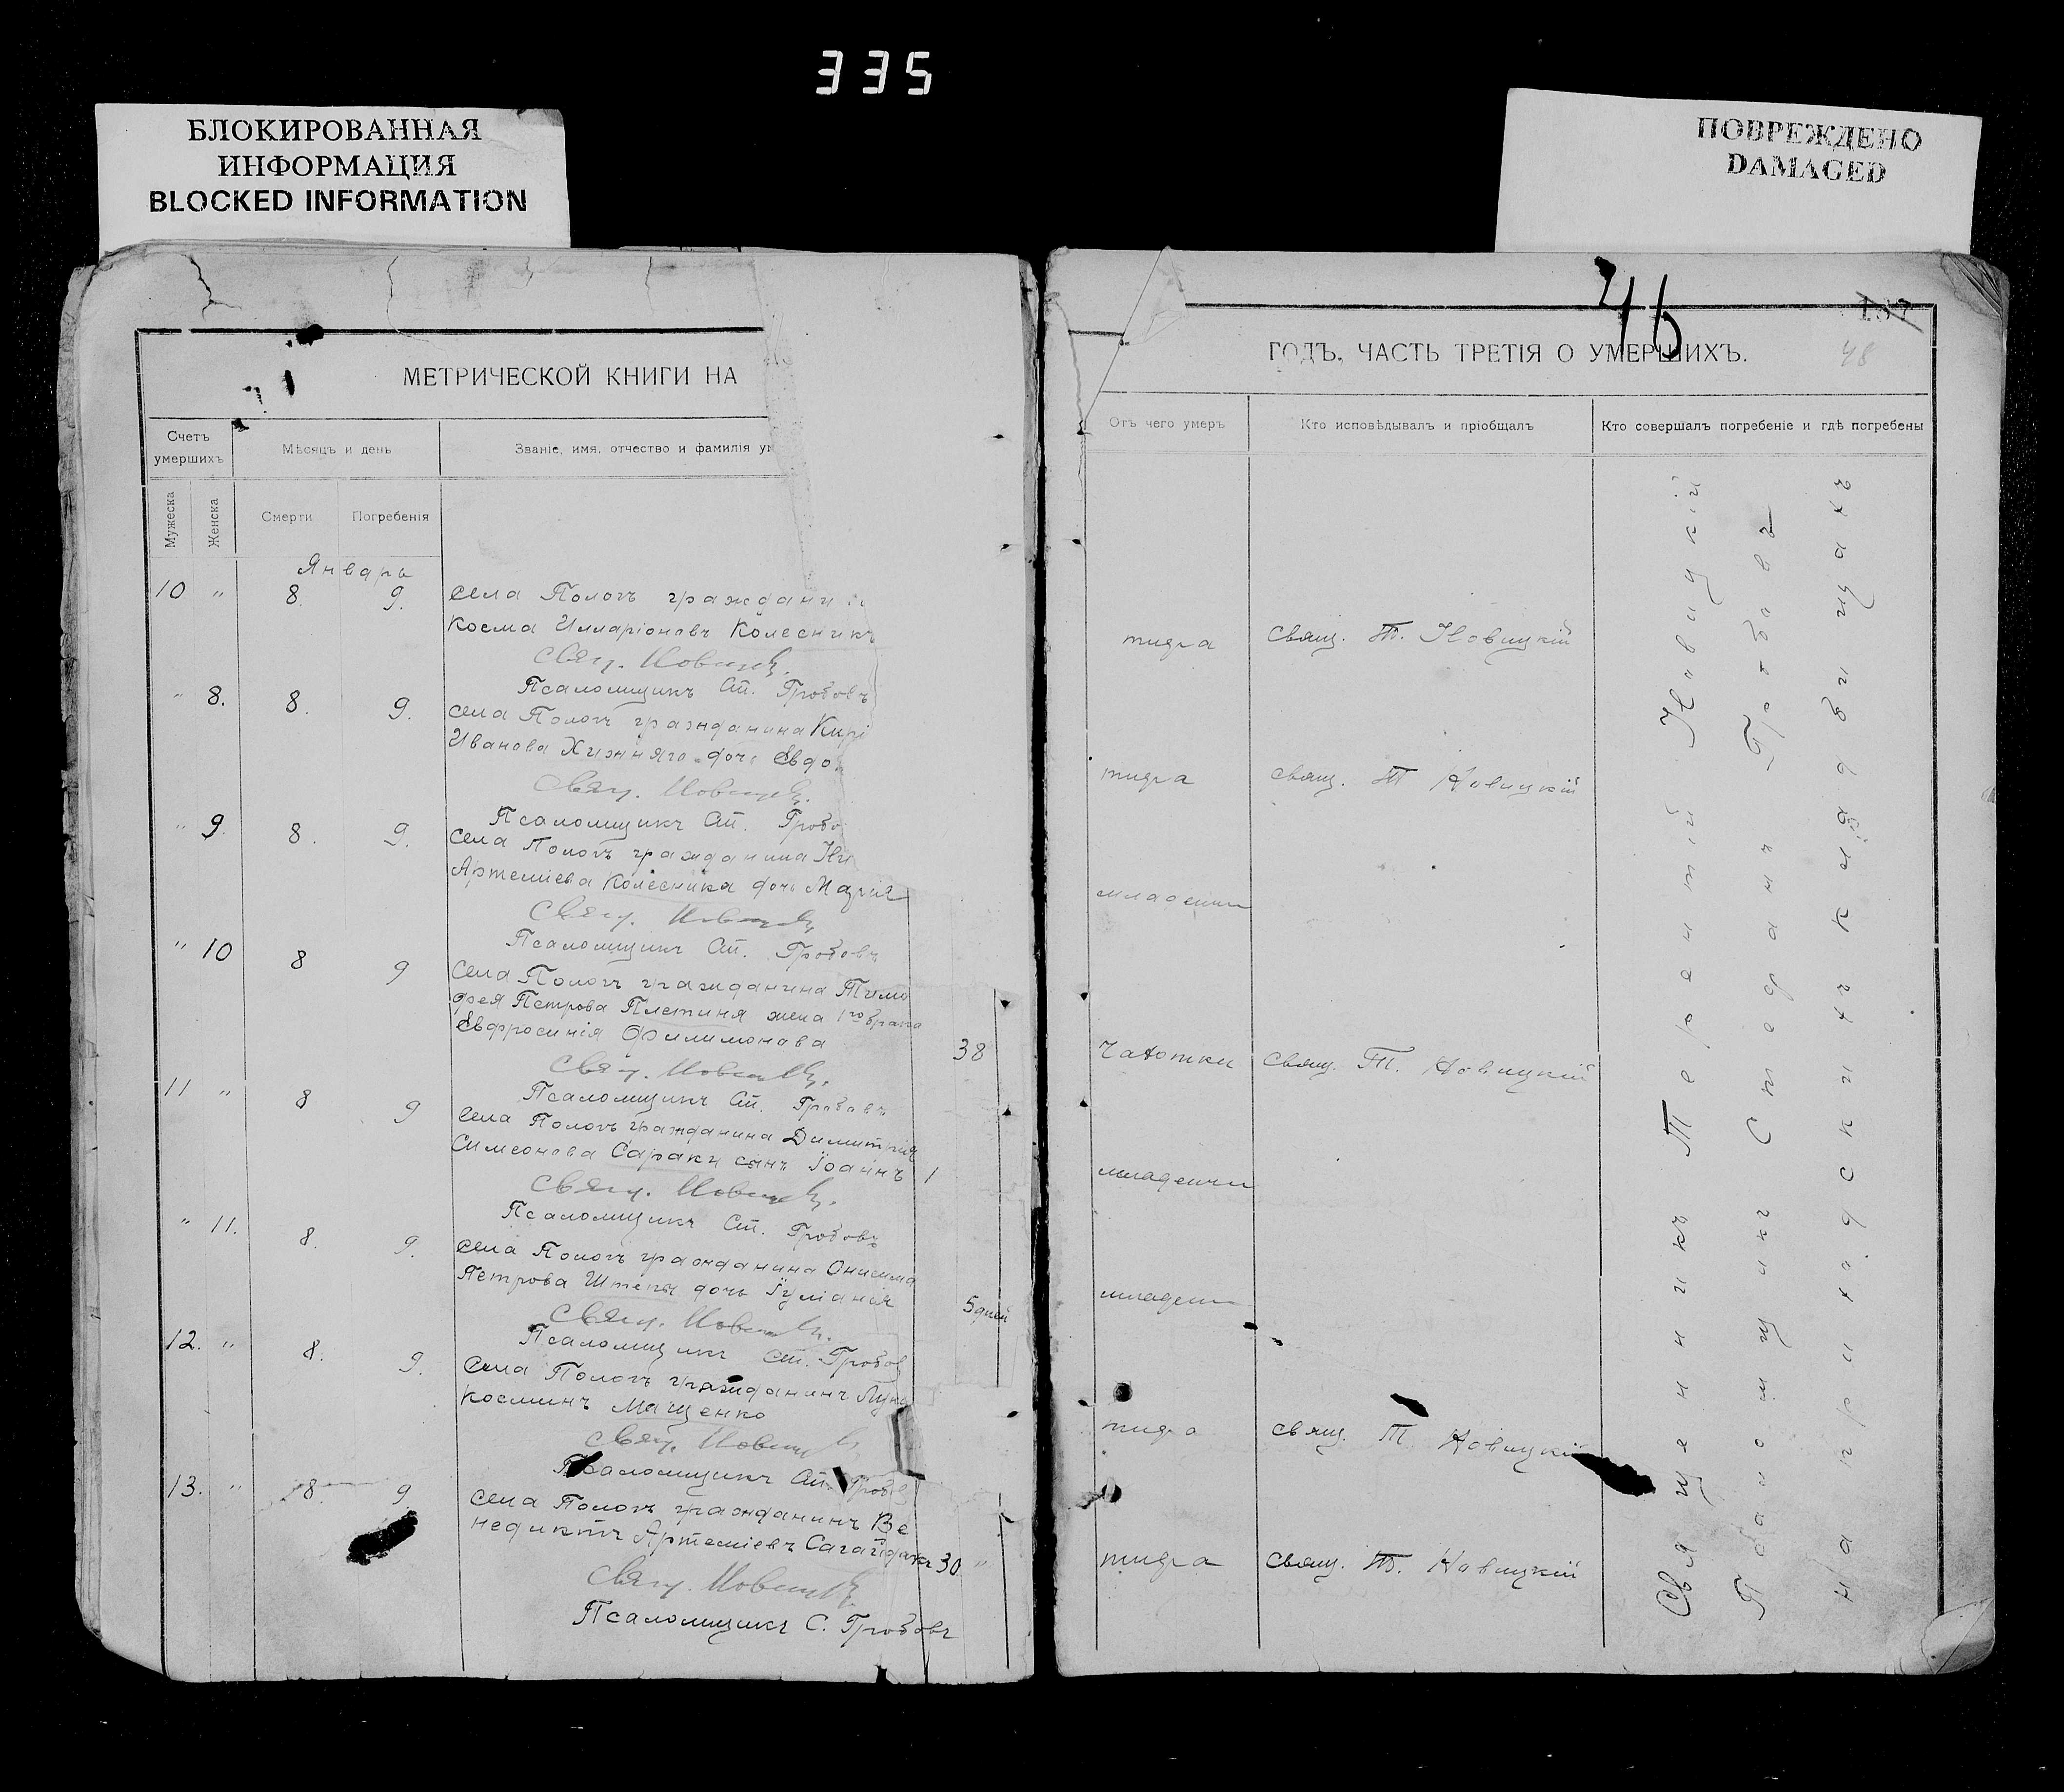 335
БЛОКИРОВАННАЯ
ИНФОРМАЦИЯ
BLOCKED INFORMATION
ПОВРЕЖДЕНО
DAMAGED
МЕТРИЧЕСКОЙ КНИГИ НА
Счетъ
умершихъ
Мѣсяцъ и день
Званіе, имя, отчество и фамилія ум
Мужеска
Женска
Смерти
Погребенія
Январь
10 " 8. 9. села Пологъ граждани
Косма Илларіоновъ Колесникъ
Свящ. Новицкій
Псаломщикъ Ст. Гробовъ
" 8. 8. 9. села Пологъ гражданина Кирі
Иванова Хижняго дочь Евдо
Свящ. Новицкій
Псаломщикъ Ст. Гробо
" 9. 8. 9. села Пологъ гражданина
Артеміева Колесника дочь Марія
Свящ. Новицкій
Псаломщикъ Ст. Гробовъ
" 10 8 9 села Пологъ гражданина Тимо
фея Петрова Плетиня жена 1го брака
Евфросинія Филимонова 38
Свящ. Новицкій
Псаломщикъ Ст. Гробовъ
11 " 8 9 села Пологъ гражданина Димитрія
Симеонова Сараки сынъ Іоаннъ 1
Свящ. Новицкій
Псаломщикъ Ст. Гробовъ
" 11. 8. 9. села Пологъ гражданина Онисима
Петрова Штепы дочь Іуліанія 5 дней
Свящ. Новицкій
Псаломщикъ Ст. Гробов
12. " 8. 9. села Пологъ гражданинъ Лука
Косминъ Мащенко
Свящ. Новицкій
Псаломщикъ Ст. Гробов
13. " 8. 9 села Пологъ гражданинъ Ве
недиктъ Артеміевъ Сагайдакъ 30 "
Свящ. Новицкій
Псаломщикъ С. Гробовъ
46
137
48
ГОДЪ, ЧАСТЬ ТРЕТІЯ О УМЕРШИХЪ.
Отъ чего умеръ
Кто исповѣдывалъ и пріобщалъ
Кто совершалъ погребеніе и гдѣ погребены
тифа свящ. Т. Новицкій
тифа свящ. Т Новицкій
младенч
чахотки свящ. Т. Новицкій
младенчи
младенч
тифа свящ. Т Новицкій
тифа свящ. Т. Новицкій
Священникъ Терентій Новицкій
Псаломщикъ Стефанъ Гробовъ
на приходскихъ кладбищахъ